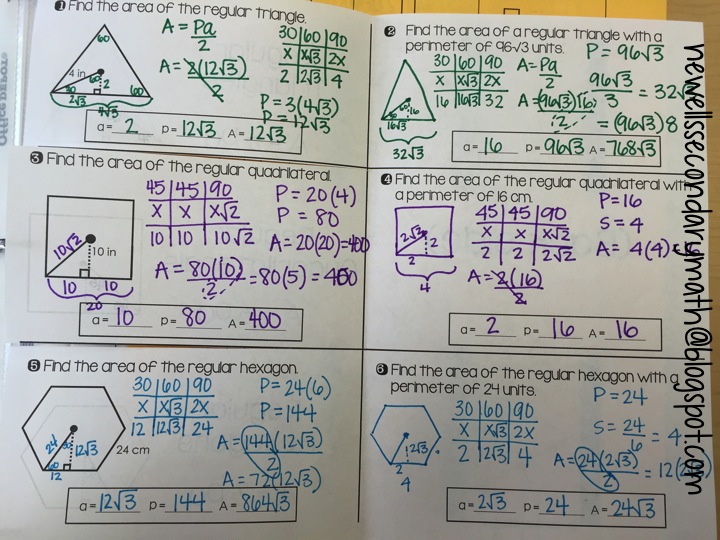 ❶ Find the area of the regular triangle.
A = Pa/2
A = 2(12√3)/2
30 | 60 | 90
x | x√3 | 2x
2 | 2√3 | 4
P = 3(4√3)
P = 12√3
60
4 in
60
2
30
60
2√3
4√3
a = 2 p = 12√3 A = 12√3
❷ Find the area of a regular triangle with a
perimeter of 96√3 units.
P = 96√3
30 | 60 | 90
x | x√3 | 2x
16 | 16√3 | 32
A = Pa/2
96√3/3 = 32√3
A = (96√3)16/2
= (96√3)8
60
16
30
16√3
32√3
a = 16 p = 96√3 A = 768√3
❸ Find the area of the regular quadrilateral.
45 | 45 | 90
x | x | x√2
10 | 10 | 10√2
P = 20(4)
P = 80
A = 20(20) = 400
A = 80(10)/2 = 80(5) = 400
10√2
10 in
10 10
20
a = 10 p = 80 A = 400
❹ Find the area of the regular quadrilateral with
a perimeter of 16 cm.
P = 16
S = 4
A = 4(4)
45 | 45 | 90
x | x | x√2
2 | 2 | 2√2
A = 2(16)/2
2√3
2
2
4
a = 2 p = 16 A = 16
❺ Find the area of the regular hexagon.
30 | 60 | 90
x | x√3 | 2x
12 | 12√3 | 24
P = 24(6)
P = 144
A = (144)(12√3)/2
A = 72(12√3)
24
30
12√3
60
12
24 cm
a = 12√3 p = 144 A = 864√3
❻ Find the area of the regular hexagon with a
perimeter of 24 units.
P = 24
S = 24/6 = 4
30 | 60 | 90
x | x√3 | 2x
2 | 2√3 | 4
A = 24(2√3)/2 = 12(2√3)
2√3
2
4
a = 2√3 p = 24 A = 24√3
newellssecondarymath@blogspot.com
Office DEPOT